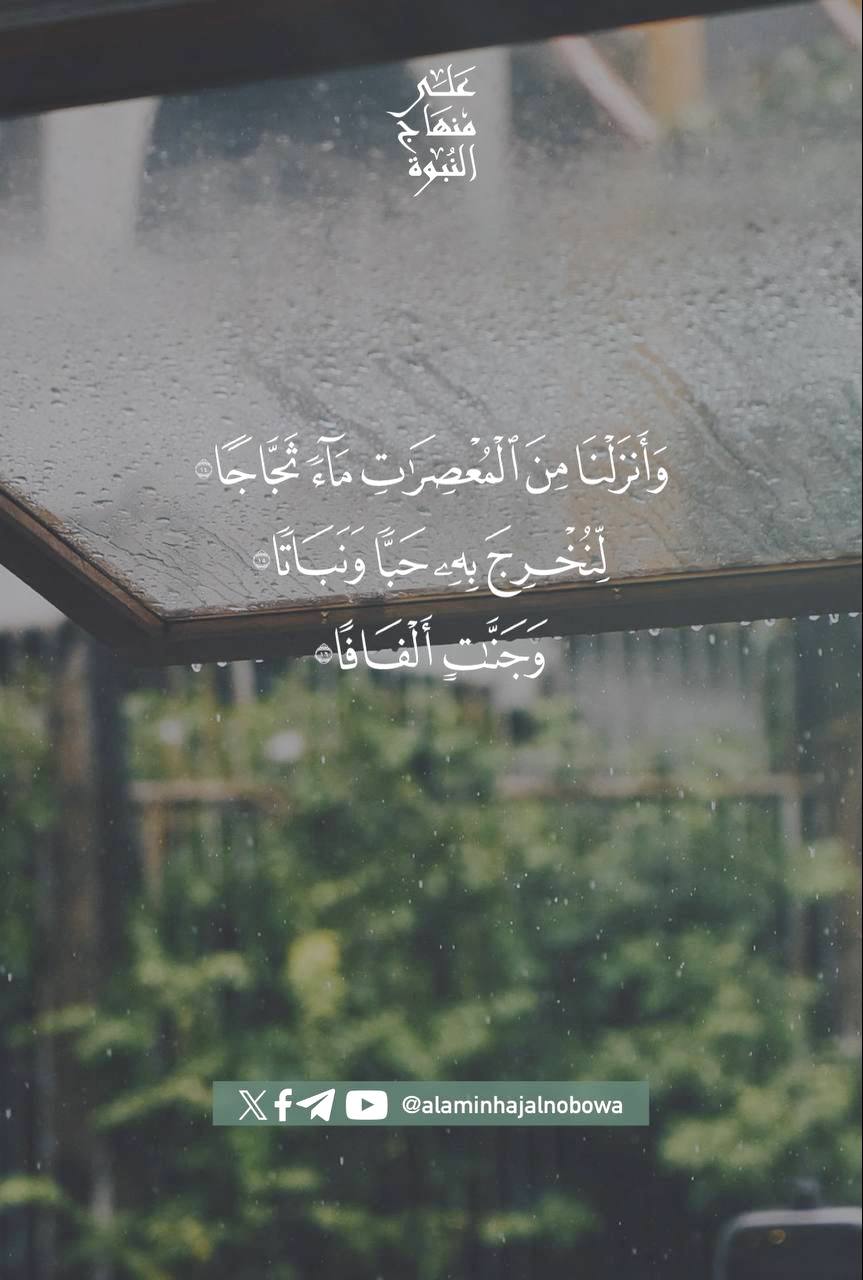 عَلَى
مِنهَاج
النُّبُوة
وَأَنزَلْنَا مِنَ ٱلْمُعْصِرَٰتِ مَآءً ثَجَّاجًا ١٤
لِّنُخْرِجَ بِهِۦ حَبًّا وَنَبَاتًا ١٥
وَجَنَّٰتٍ أَلْفَافًا ١٦
@alaminhajalnobowa